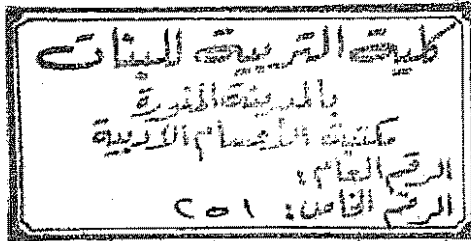 كلية التربية للبنات
بالمدينة المنورة
مكتبة الأقسام الأدبية
الرقم العام:
الرقم الخاص: ٢٥١